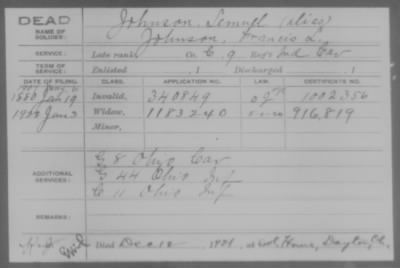 DEAD
NAME OF SOLDIER: Johnson, Lemuel (alias)
Johnson, Francis L.
SERVICE: Late rank, Co. C 9 Reg't Ind Cav
TERM OF SERVICE: Enlisted , 1 Discharged , 1
DATE OF FILING. CLASS. APPLICATION NO. LAW. CERTIFICATE NO.
1880 Jan 19 Invalid, 340849 1002356
Jan 3 Widow, 1183240 916,819
Minor,
ADDITIONAL SERVICES: G 8 Ohio Cav
G 44 Ohio Inf
C 11 Ohio Inf
REMARKS:
Died Dec 12 1921, at Home, Dayton, O.